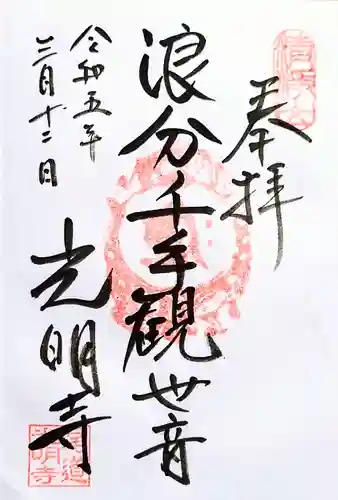 奉拝
浪分千手観世音
令和五年
三月十二日
光明寺